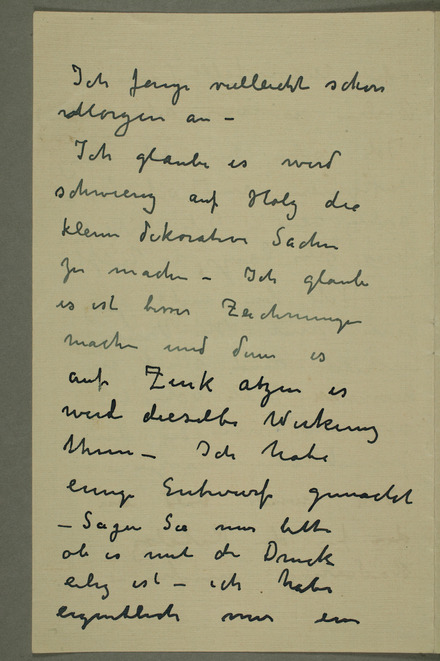 Ich fange vielleicht schon
Morgen an –
Ich glaube es wird
schwierig auf Holz die
kleine dekorative Sachen
zu machen – Ich glaube
es ist besser Zeichnungen
machen und dann es
auf Zink atzen es
wird dieselbe Wirkung
thun – Ich habe
einige Entwurfe gemacht
– Sagen Sie mir bitte
ob es mit der Druck
eilig ist – ich habe
eigentlich nur ein